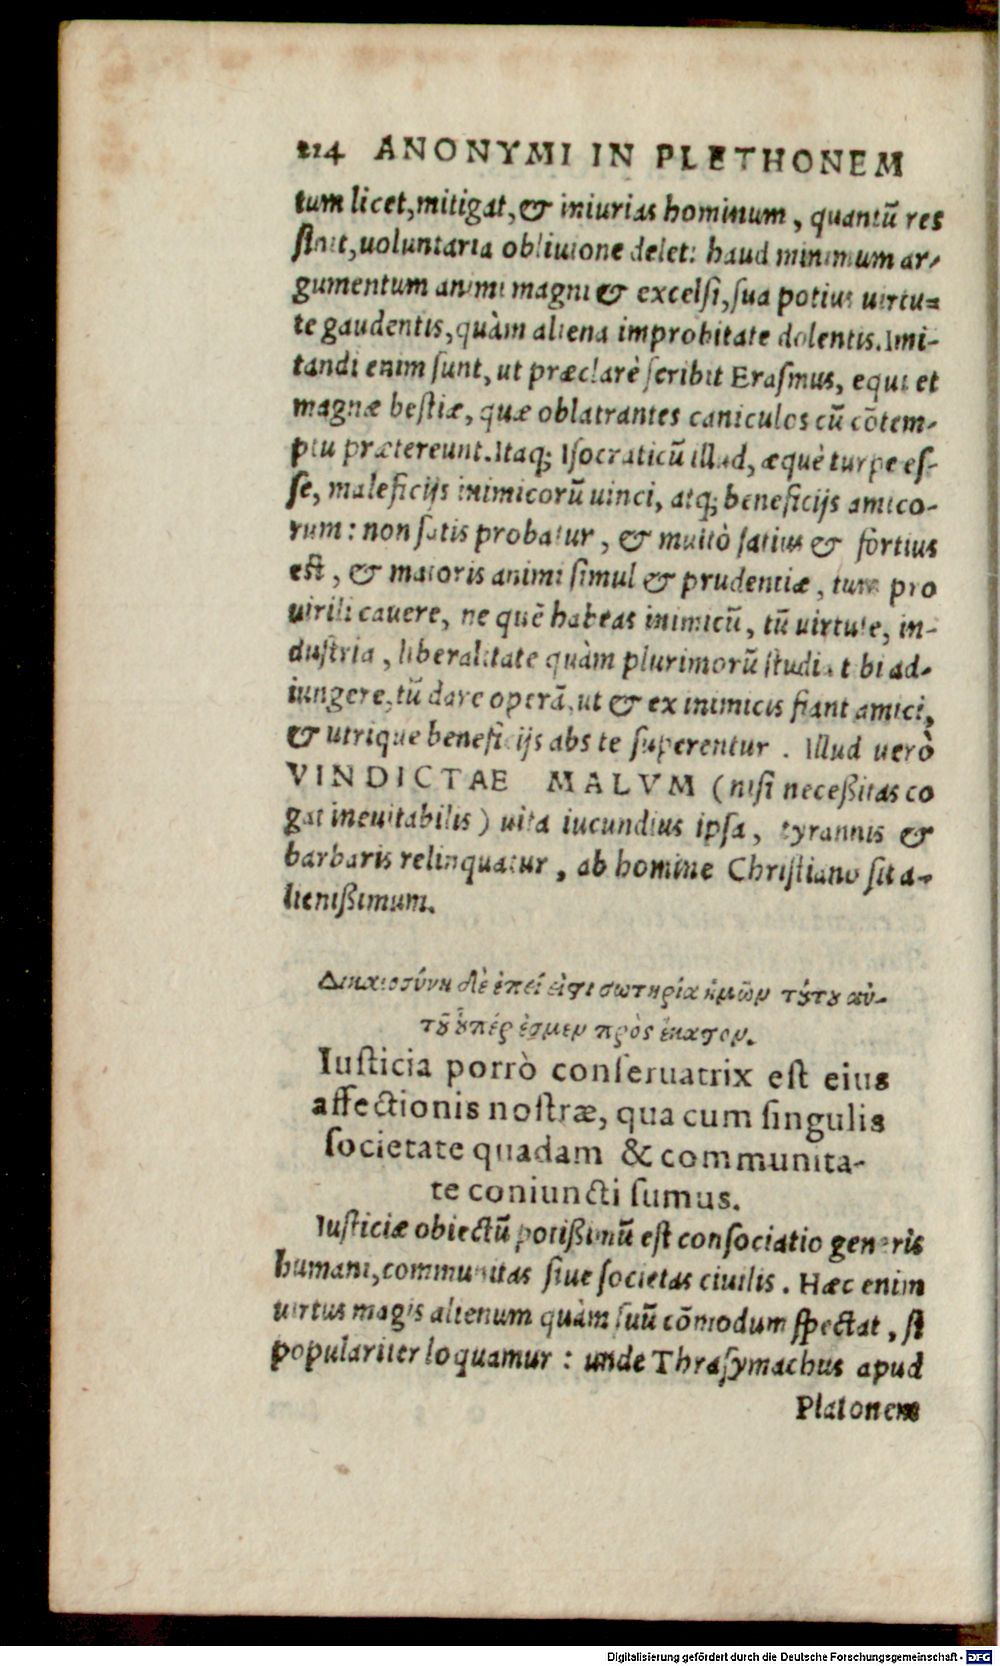 214 ANONYMI IN PLETHONEM
tum licet, mitigat, & iniurias hominum, quantũ res
ſinit, uoluntaria obliuione delet: haud minimum ar-
gumentum animi magni & excelſi, ſua potius uirtu=
te gaudentis, quàm aliena improbitate dolentis. Imi-
tandi enim ſunt, ut præclarè ſcribit Eraſmus, equi et
magnæ beſtiæ, quæ oblatrantes caniculos cũ cõtem-
ptu prætereunt. Itaq; Iſocraticũ illud, æquè turpe eſ-
ſe, maleficijs inimicorũ uinci, atq; beneficijs amico-
rum: non ſatis probatur, & multò ſatius & fortius
eſt, & maioris animi ſimul & prudentiæ, tum pro
uirili cauere, ne quẽ habeas inimicũ, tũ uirtute, in-
duſtria, liberalitate quàm plurimorũ ſtudia tibi ad-
iungere, tũ dare operã, ut & ex inimicis fiant amici,
& utrique beneficijs abs te ſuperentur. Illud uerò
VINDICTAE MALVM (niſi neceßitas co
gat ineuitabilis) uita iucundius ipſa, tyrannis &
barbaris relinquatur, ab homine Chriſtiano ſit a-
lienißimum.
Δικαιοσύνη δὲ ἐπεί ἐϛι σωτηρία ἡμῶν τȣ́τȣ αὐ-
τȣ͂ ὅπέρ ἐσμεν πρὸς ἕκαϛον.
Iuſticia porrò conſeruatrix eſt eius
affectionis noſtræ, qua cum ſingulis
ſocietate quadam & communita-
te coniuncti ſumus.
Iuſticiæ obiectũ potißimũ eſt conſociatio generis
humani, communitas ſiue ſocietas ciuilis. Hæc enim
uirtus magis alienum quàm ſuũ cõmodum ſpectat, ſi
populariter loquamur: unde Thraſymachus apud
Platonem
Digitalisierung gefördert durch die Deutsche Forschungsgemeinschaft - DFG